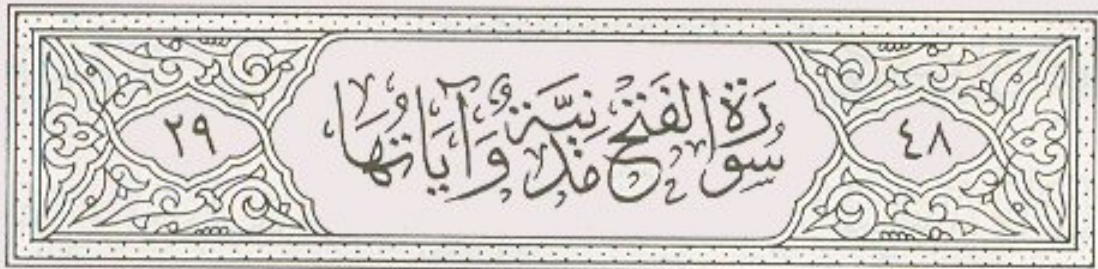 ٤٨
سُورَةُ الفَتْحِ مَدَنِيَّةٌ وَآيَاتُهَا
٢٩